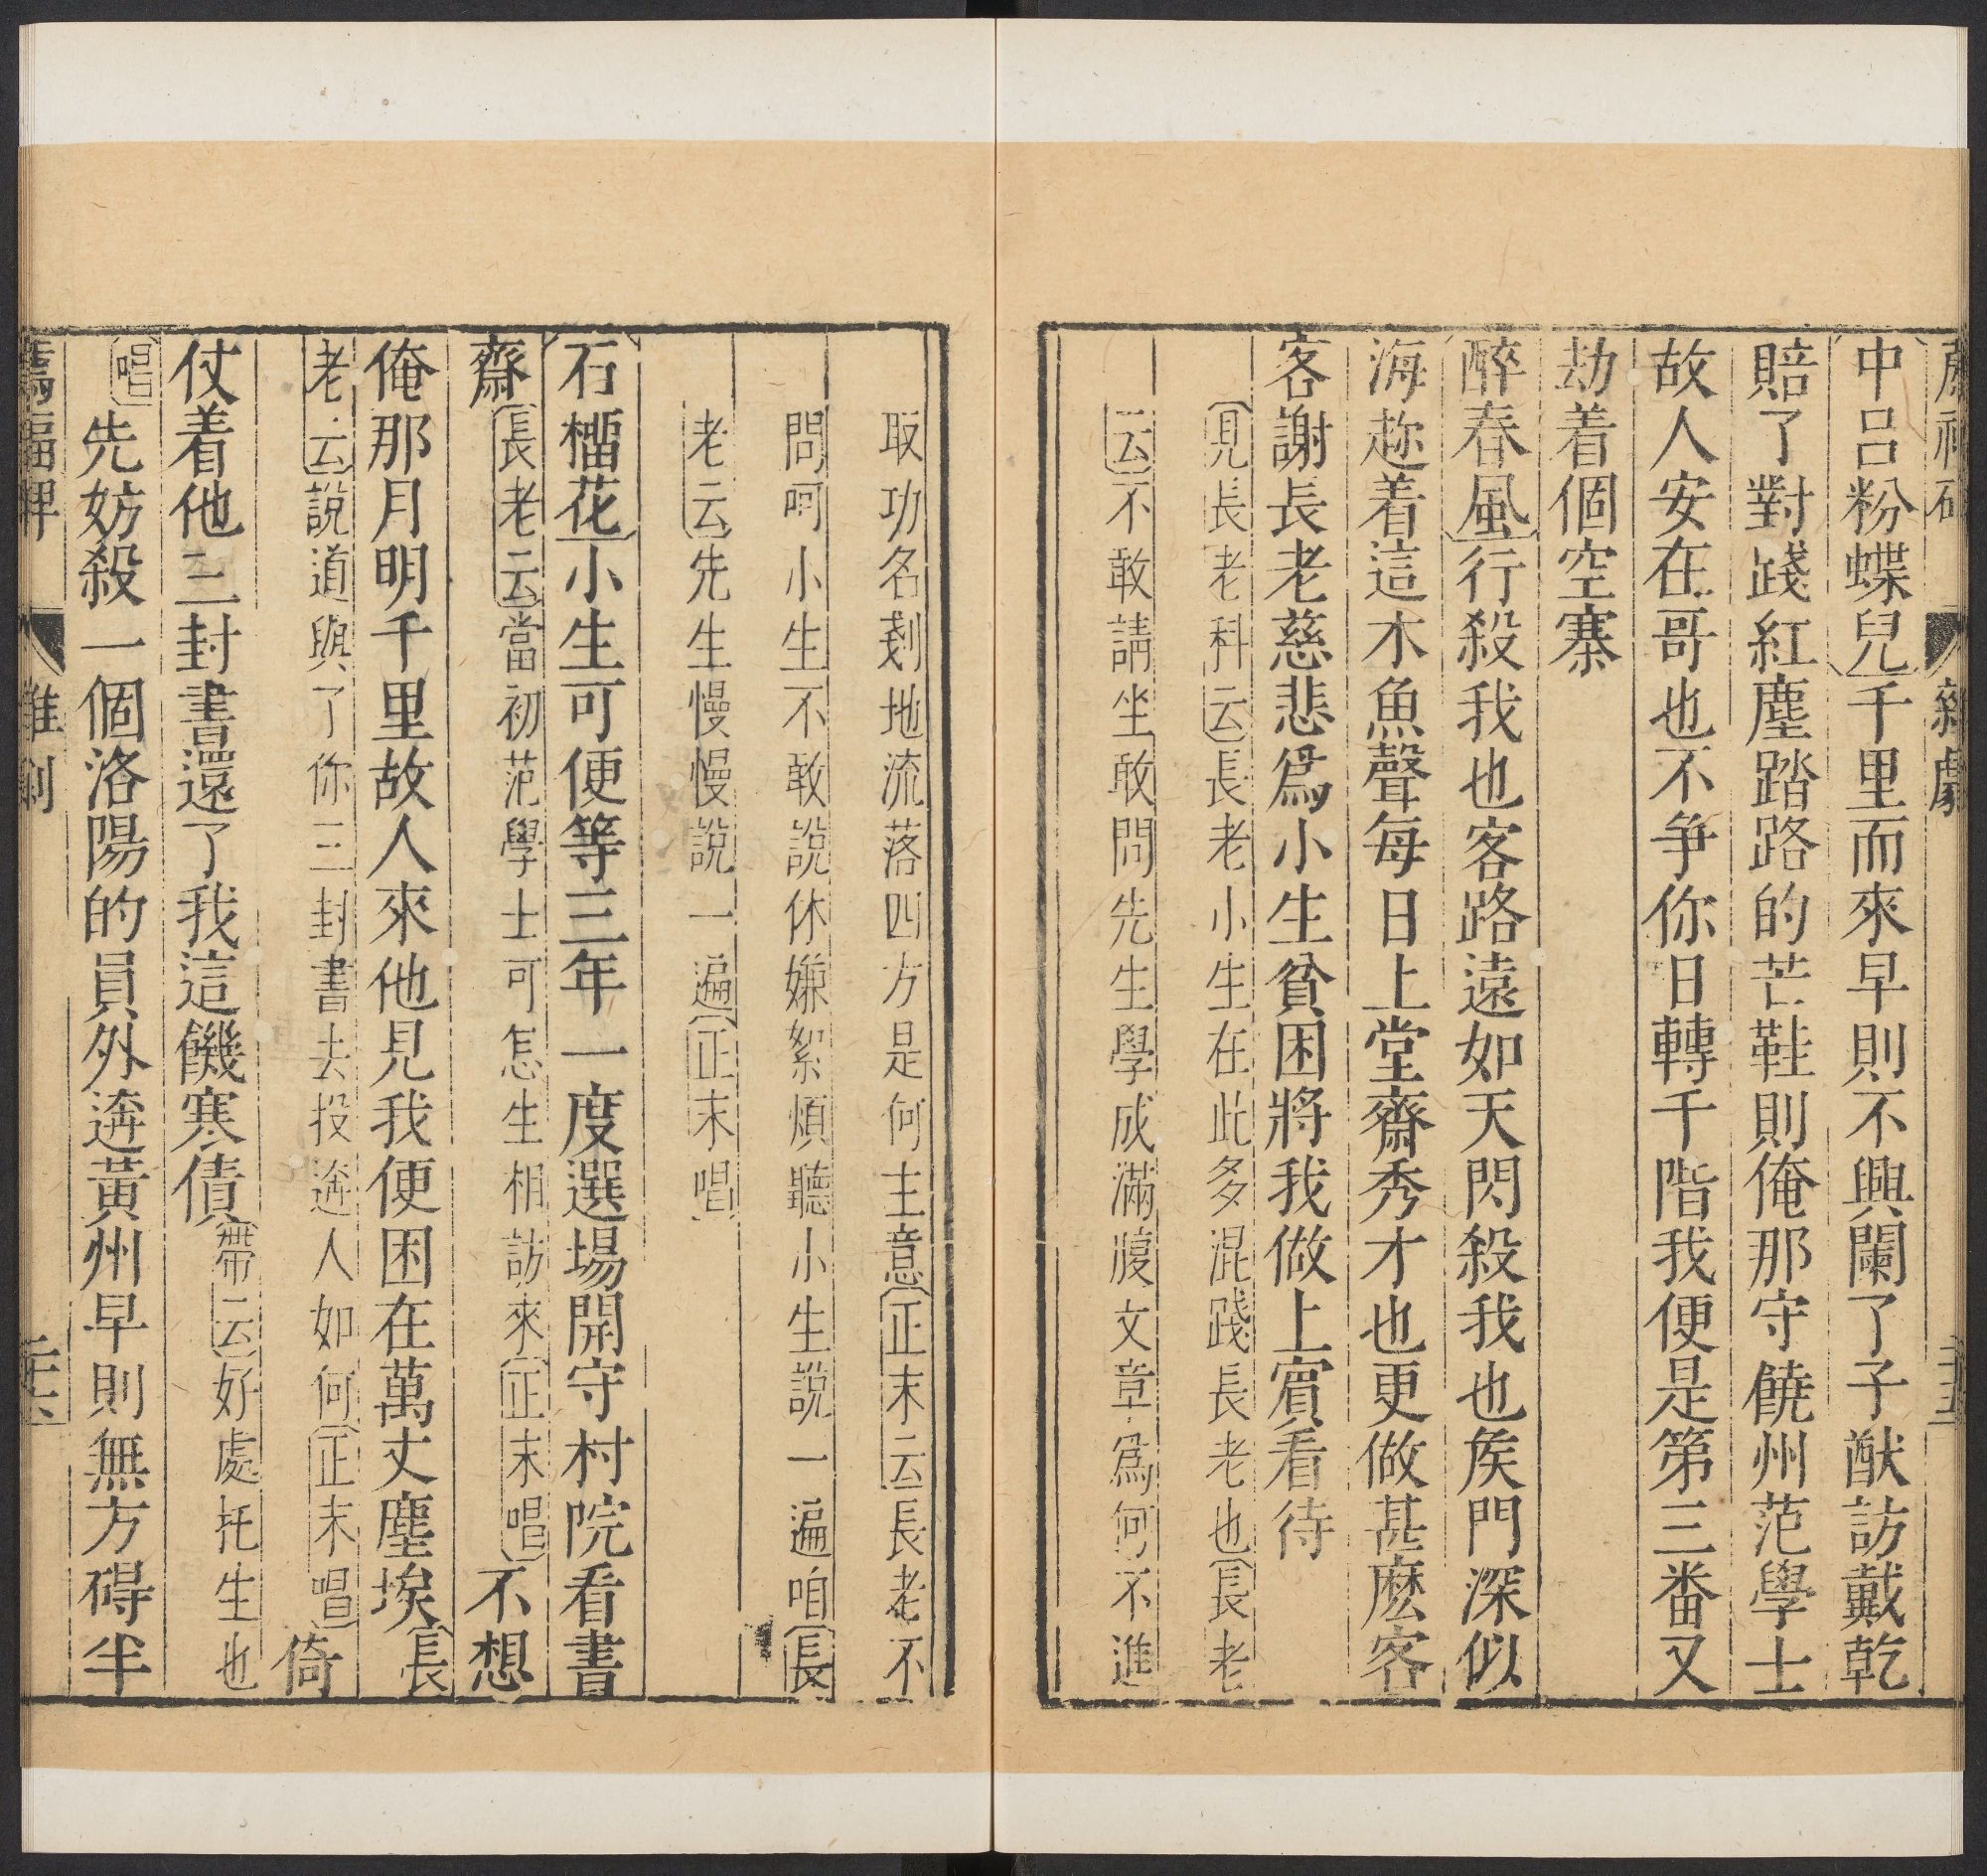 薦福碑 雜劇 二十五
中呂粉蝶兒千里而來早則不興闌了子猷訪戴乾
賠了對踐紅塵踏路的芒鞋則俺那守饒州范學士
故人安在哥也不争你日轉千階我便是第三番又
劫着個空寨
醉春風行殺我也客路遠如天閃殺我也矦門深似
海趂着這木魚聲每日上堂齋秀才也更做甚麽客
客謝長老慈悲爲小生貧困將我做上賔看待
見長老科云長老小生在此多混踐長老也長老
云不敢請坐敢問先生學成滿腹文章爲何不進
取功名剗地流落四方是何主意正末云長老不
問呵小生不敢說休嫌絮煩聽小生說一遍咱長
老云先生慢慢說一遍正末唱
石榴花小生可便等三年一度選場開守村院看書
齋長老云當初范學士可怎生相訪來正末唱不想
俺那月明千里故人來他見我便困在萬丈塵埃長
老云說道與了你三封書去投逩人如何正末唱倚
仗着他三封書還了我這饑寒債帶云好處托生也
唱先妨殺一個洛陽的員外逩黃州早則無方碍半
薦福碑 雜劇 二十六